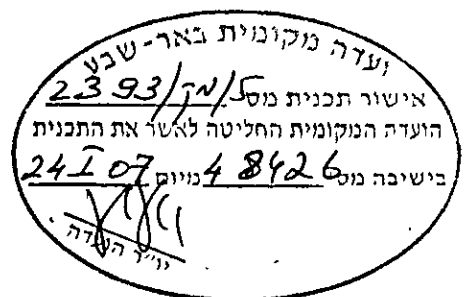 ועדה מקומית באר-שבע
אישור תכנית מס 5/מק/2393
הועדה המקומית החליטה לאשר את התכנית
בישיבה מס 48426 מיום 24 I 07
יו"ר הועדה